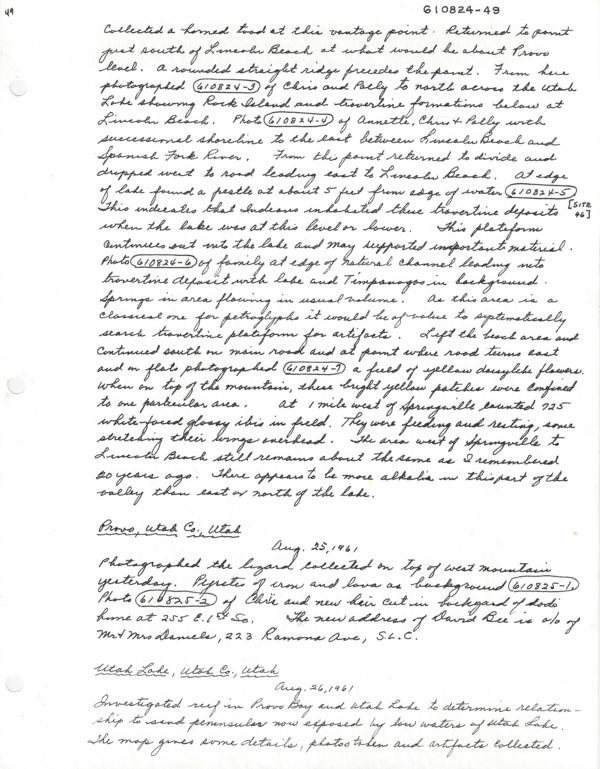 49
610824-49
Collected a horned toad at this vantage point. Returned to point
just south of Lincoln Beach at what would be about Provo
level. A rounded straight ridge precedes the point. From here
photographed (610824-3) of Chris and Polly to north across the Utah
Lake showing Rock Island and travertine formations below at
Lincoln Beach. Photo (610824-4) of Annette, Chris & Polly with
successional shoreline to the east between Lincoln Beach and
Spanish Fork River. From this point returned to divide and
dropped west to road leading east to Lincoln Beach. At edge
of lake found a pestle at about 5 feet from edge of water (610824-5)
This indicates that Indians inhabited these travertine deposits [SITE 46]
when the lake was at this level or lower. This plateform
continues out into the lake and may supported important material.
Photo (610824-6) of family at edge of natural channel leading into
travertine deposit with lake and Timpanogos in background.
Springs in area flowing in usual volume. As this area is a
classical one for petroglyphs it would be of value to systematically
search travertine plateform for artifacts. Left the beach area and
continued south on main road and at point where road turns east
and on flats photographed (610824-7) a field of yellow daisylike flowers.
When on top of the mountain, these bright yellow patches were confined
to one particular area. At 1 mile west of Springville counted 725
white-faced glossy ibis in field. They were feeding and resting, some
stretching their wings overhead. The area west of Springville to
Lincoln Beach still remains about the same as I remembered
20 years ago. There appears to be more alkalia in this part of the
valley than east or north of the lake.
Provo, Utah Co., Utah
Aug. 25, 1961
Photographed the lizard collected on top of west mountain
yesterday. Pyrites of iron and lava as background (610825-1).
Photo (610825-2) of Chris and new hair cut in backyard of dads
home at 255 E. 1st So. The new address of David Bee is c/o of
Mr & Mrs Daniels, 223 Ramona Ave, S.L.C.
Utah Lake, Utah Co., Utah
Aug. 26, 1961
Investigated reef in Provo Bay and Utah Lake to determine relation-
ship to sand peninsular now exposed by low waters of Utah Lake.
The map gives some details, photos taken and artifacts collected.